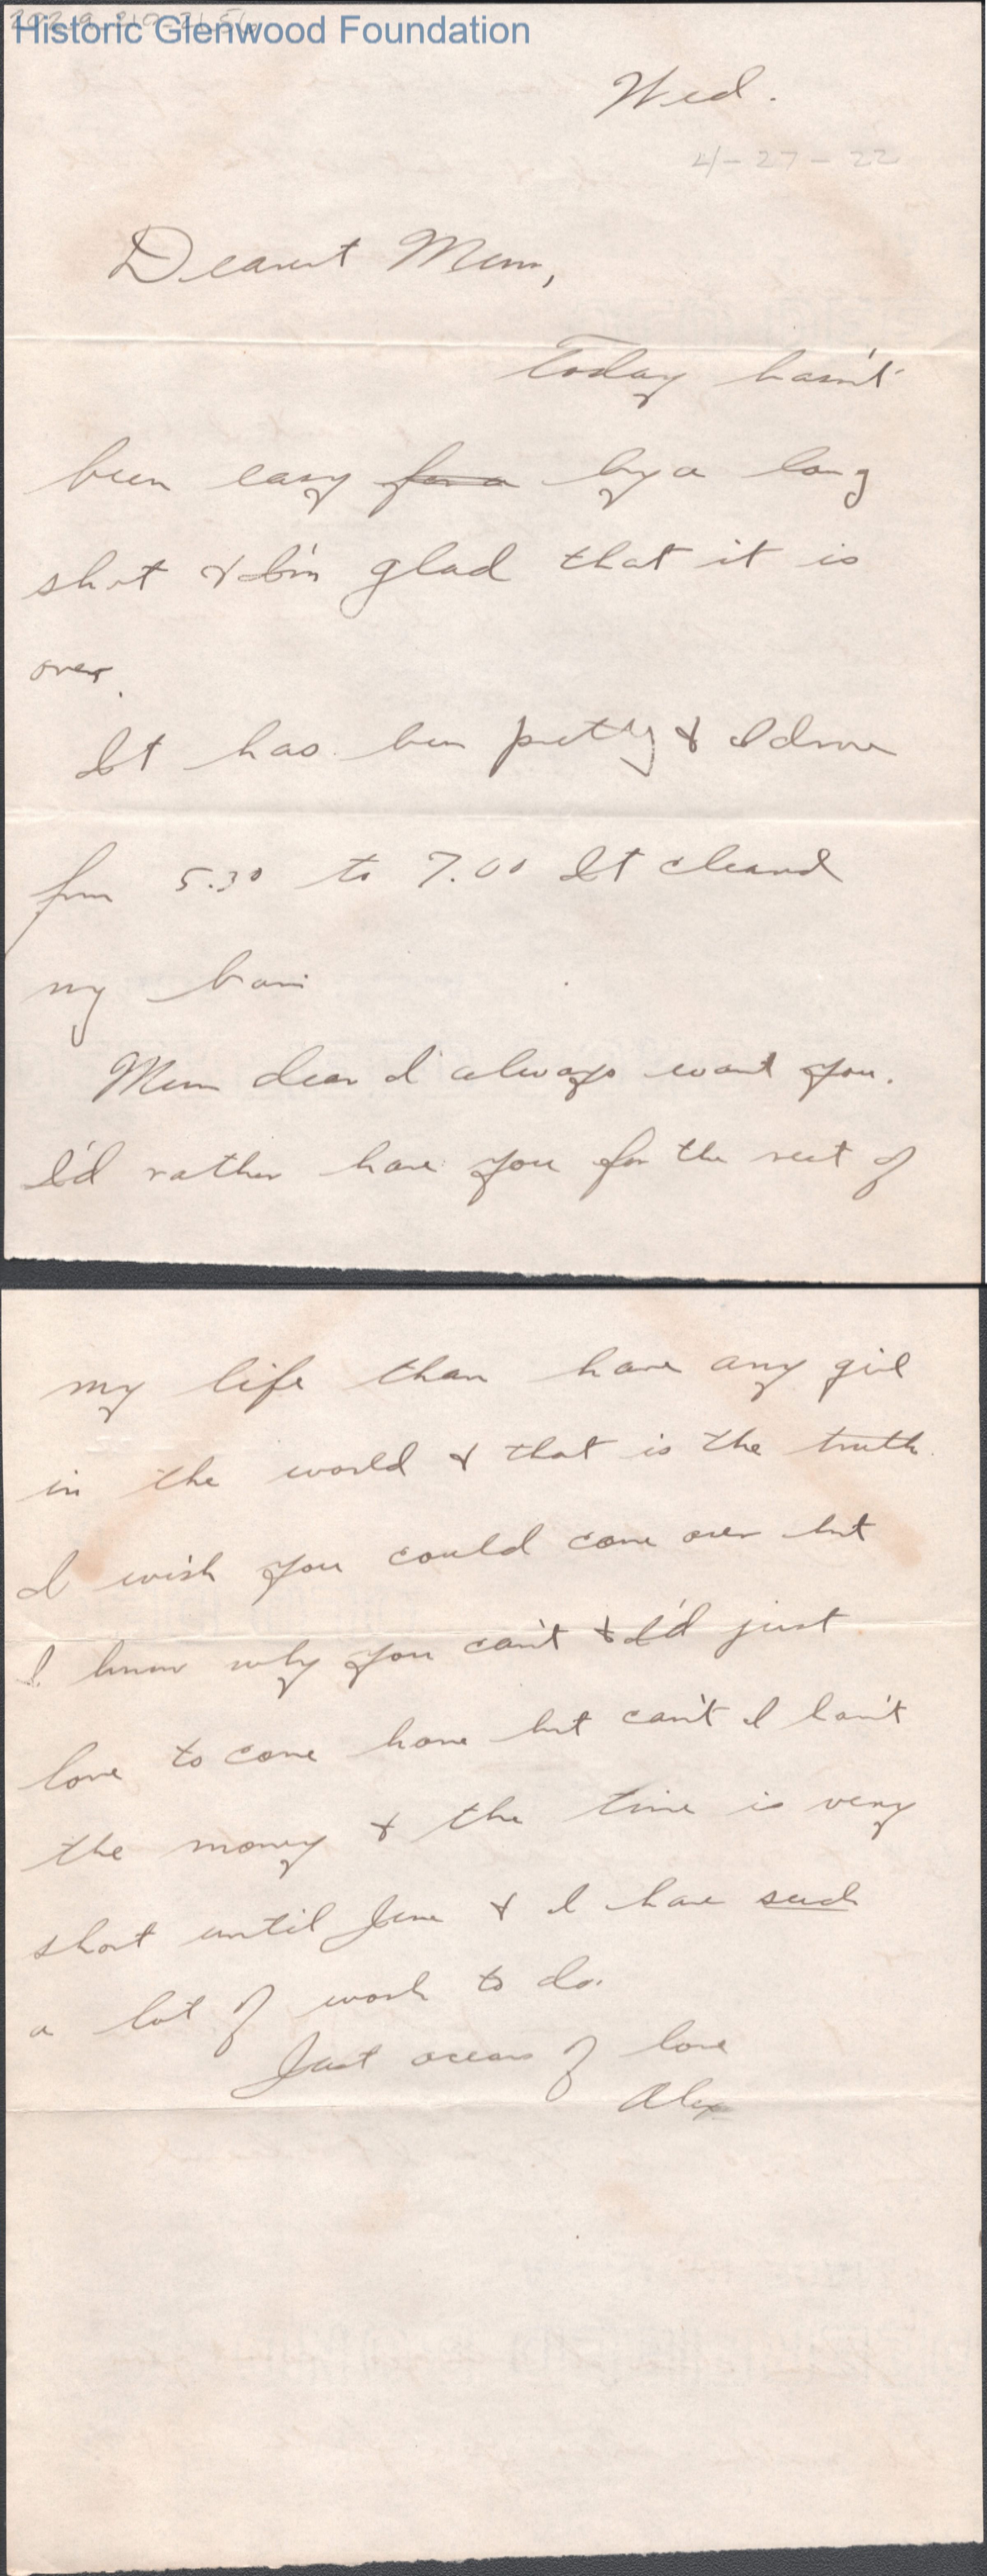 Historic Glenwood Foundation
Wed.
4-27-22
Dearest Mum,
Today hasn't
been easy for a by a long
shot & I'm glad that it is
over.
It has been pretty & I drove
from 5.30 to 7.00 It cleared
my brain
Mum dear I always want you.
I'd rather have you for the rest of
my life than have any girl
in the world & that is the truth.
I wish you could come over but
I know why you can't & I'd just
love to come home but can't I han't
the money & the time is very
short until June & I have such
a lot of work to do.
Just oceans of love
Alex